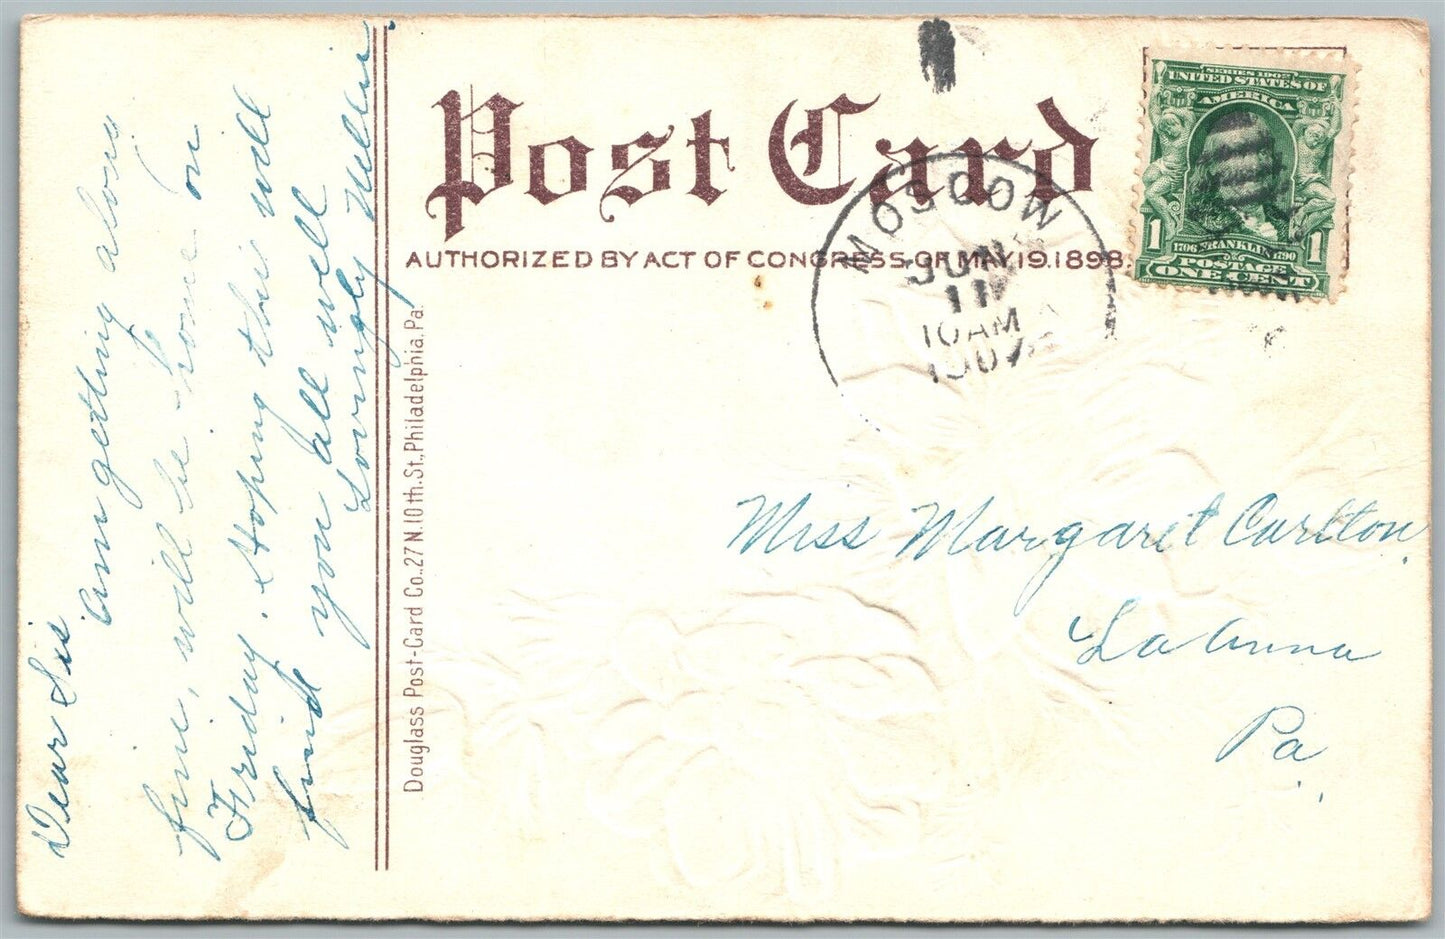 Post Card
AUTHORIZED BY ACT OF CONGRESS OF MAY 19. 1898.
SERIES 1902
UNITED STATES OF
AMERICA
1 1706 FRANKLIN 1790 1
POSTAGE
ONE CENT
MOSCOW
JUN
11
10 AM
1907
Dear Sis
am getting along
fine, will be home on
Friday. Hoping this will
find you all well
Lovingly Nellie.
Douglass Post-Card Co., 27 N. 10th. St., Philadelphia, Pa.
Miss Margaret Carlton.
La Anna
Pa.